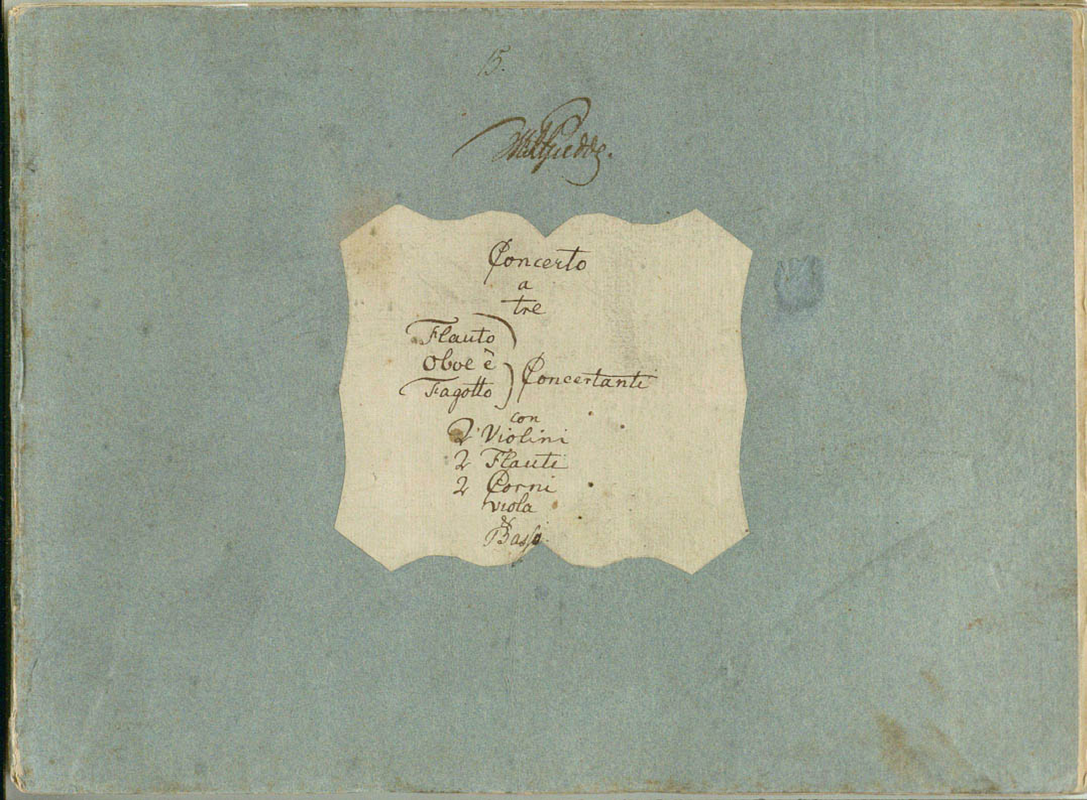 15.
Concerto
a
tre
Flauto
Oboe ê
Fagotto
Concertanti
con
2 Violini
2 Flauti
2 Corni
viola
&
Basso.